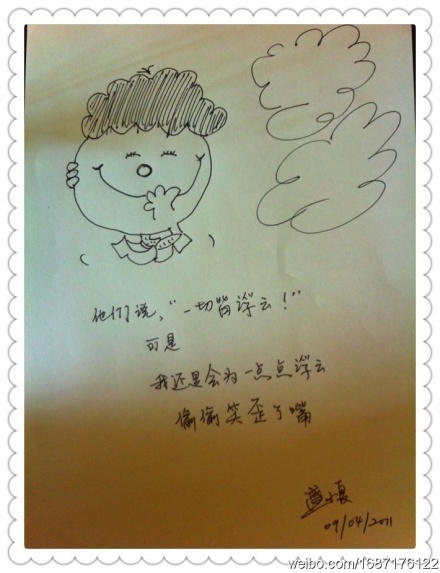 他们说，“一切皆浮云！”
可是
我还是会为一点点浮云
偷偷笑歪了嘴
09/04/2011
weibo.com/1687176122